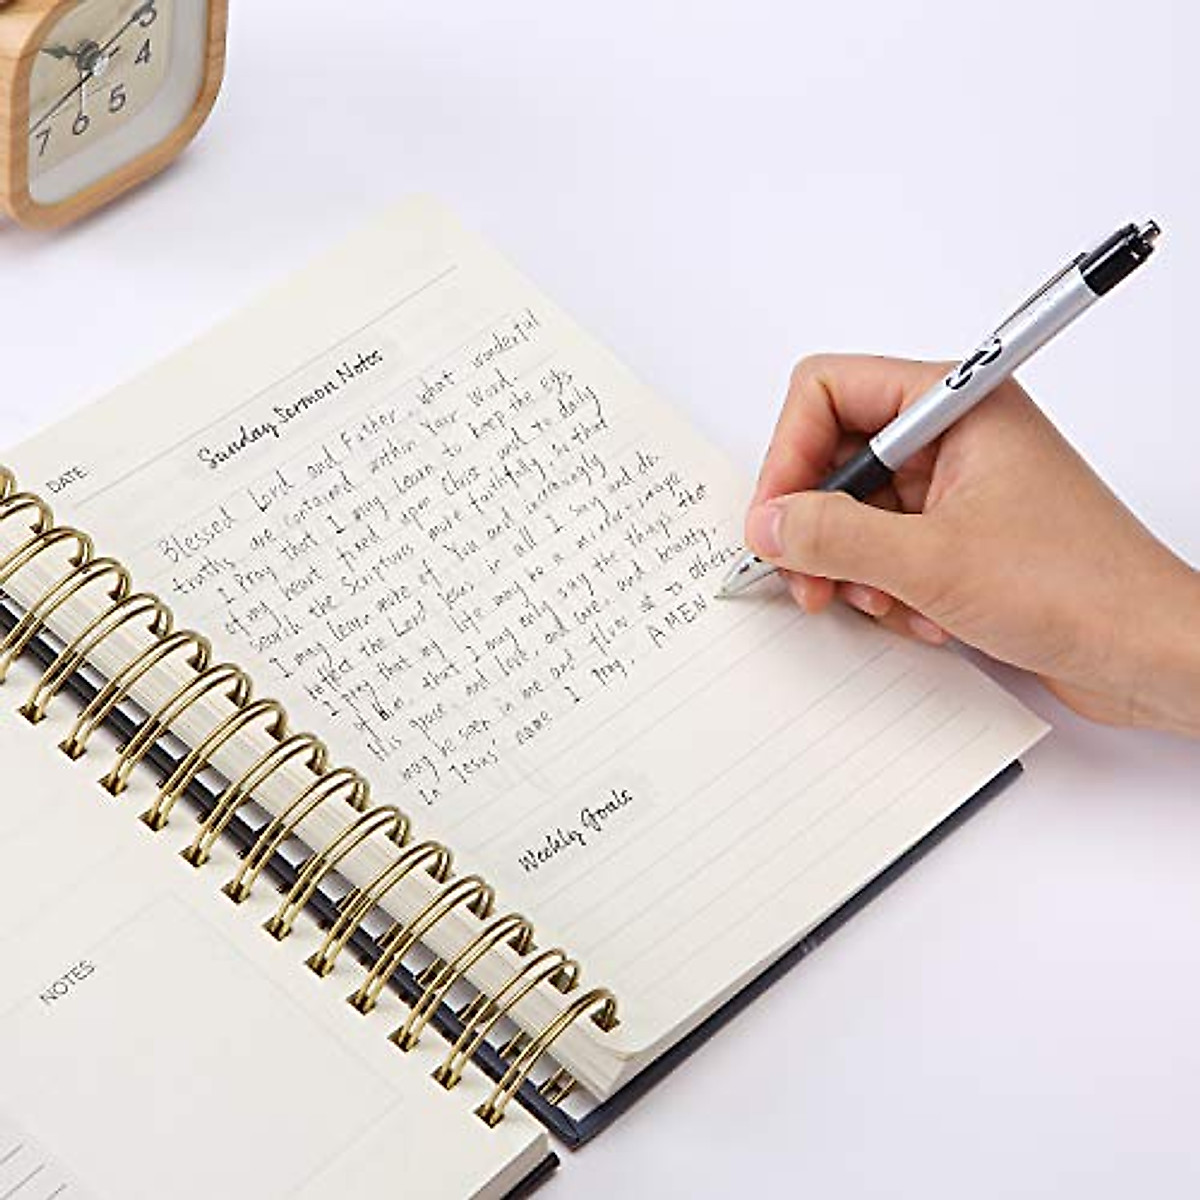 3
4
5
6
7
DATE
Sunday Sermon Notes
Blessed Lord and Father, what wonderful
truths are contained within Your Word
I Pray that I may learn to keep the eyes
of my heart fixed upon Christ and to daily
search the Scriptures more faithfully, so that
I may learn more of You and increasingly
reflect the Lord Jesus in all I say and do.
I Pray that my life may be a mirror-image
of Him, that I may only say the things that
His grace, and love, and beauty,
may be seen in me and flow to others
In Jesus' name I pray, AMEN
Weekly Goals
NOTES